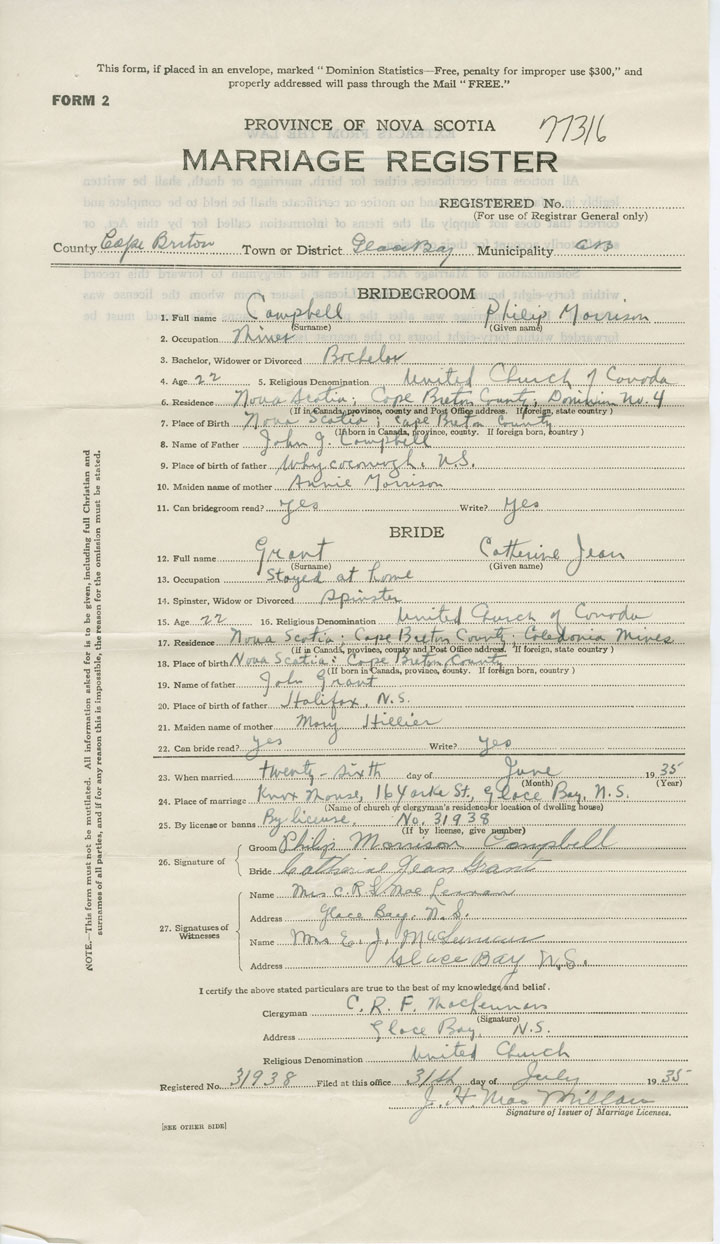 This form, if placed in an envelope, marked "Dominion Statistics—Free, penalty for improper use $300," and
properly addressed will pass through the Mail "FREE."
FORM 2
PROVINCE OF NOVA SCOTIA 77316
MARRIAGE REGISTER
REGISTERED No.
(For use of Registrar General only)
County Cape Breton Town or District Glace Bay Municipality CB
BRIDEGROOM
1. Full name Campbell Philip Morrison
(Surname) (Given name)
2. Occupation Miner
3. Bachelor, Widower or Divorced Bachelor
4. Age 22 5. Religious Denomination United Church of Canada
6. Residence Nova Scotia; Cape Breton County; Dominion No. 4
(If in Canada, province, county and Post Office address. If foreign, state country)
7. Place of Birth Nova Scotia; Cape Breton County
(If born in Canada, province, county. If foreign born, country)
8. Name of Father John J. Campbell
9. Place of birth of father Whycocomagh, N.S.
10. Maiden name of mother Annie Morrison
11. Can bridegroom read? Yes Write? Yes
BRIDE
12. Full name Grant Catherine Jean
(Surname) (Given name)
13. Occupation Stayed at home
14. Spinster, Widow or Divorced Spinster
15. Age 22 16. Religious Denomination United Church of Canada
17. Residence Nova Scotia; Cape Breton County; Caledonia Mines
(If in Canada, province, county and Post Office address. If foreign, state country)
18. Place of birth Nova Scotia: Cape Breton County
(If born in Canada, province, county. If foreign born, country)
19. Name of father John Grant
20. Place of birth of father Halifax, N.S.
21. Maiden name of mother Mary Hillier
22. Can bride read? Yes Write? Yes
23. When married twenty-sixth day of June 1935
(Month) (Year)
24. Place of marriage Knox Manse, 16 Yorke St, Glace Bay, N.S.
(Name of church or clergyman's residence or location of dwelling house)
25. By license or banns By license. No. 31938
(If by license, give number)
26. Signature of
Groom Philip Morrison Campbell
Bride Catherine Jean Grant
27. Signatures of Witnesses
Name Mrs C.R.F. MacLennan
Address Glace Bay, N.S.
Name Mrs E. J. MacLennan
Address Glace Bay N.S.
I certify the above stated particulars are true to the best of my knowledge and belief.
Clergyman C. R. F. MacLennan
(Signature)
Address Glace Bay, N.S.
Religious Denomination United Church
Registered No. 31938 Filed at this office 31st day of July 1935
J. H. MacMillan
Signature of Issuer of Marriage Licenses.
[SEE OTHER SIDE]
NOTE.—This form must not be mutilated. All information asked for is to be given, including full Christian and
surnames of all parties, and if for any reason this is impossible, the reason for the omission must be stated.